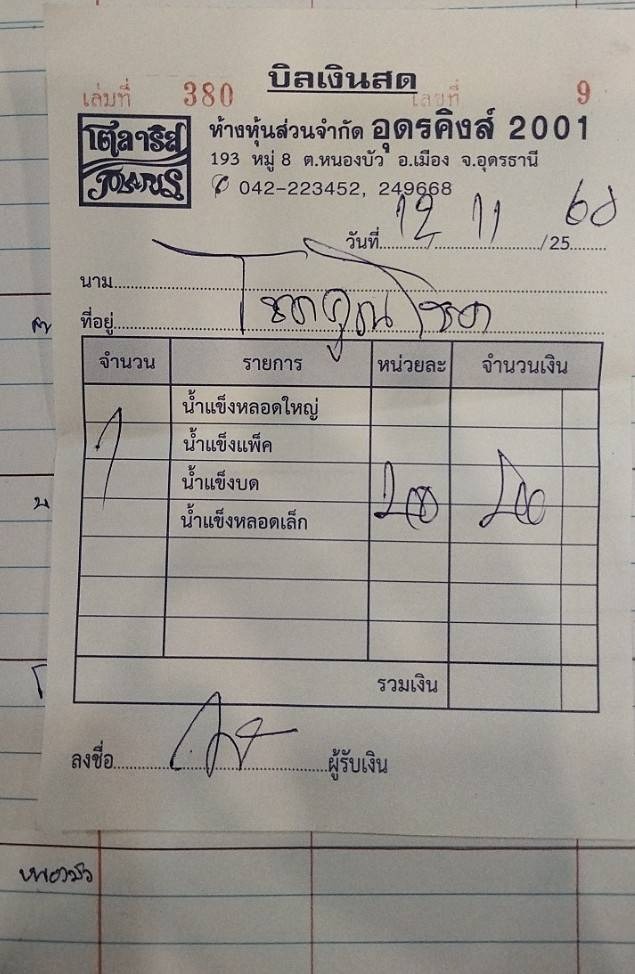 บิลเงินสด
เล่มที่ 380 เลขที่ 9
โตลาริส
TOLARIS
ห้างหุ้นส่วนจำกัด อุดรคิงส์ 2001
193 หมู่ 8 ต.หนองบัว อ.เมือง จ.อุดรธานี
042-223452, 249668
วันที่ 12 11 /25 68
นาม
ที่อยู่
จำนวน รายการ หน่วยละ จำนวนเงิน
น้ำแข็งหลอดใหญ่
1 น้ำแข็งแพ็ค
น้ำแข็งบด
น้ำแข็งหลอดเล็ก
รวมเงิน
ลงชื่อ ผู้รับเงิน